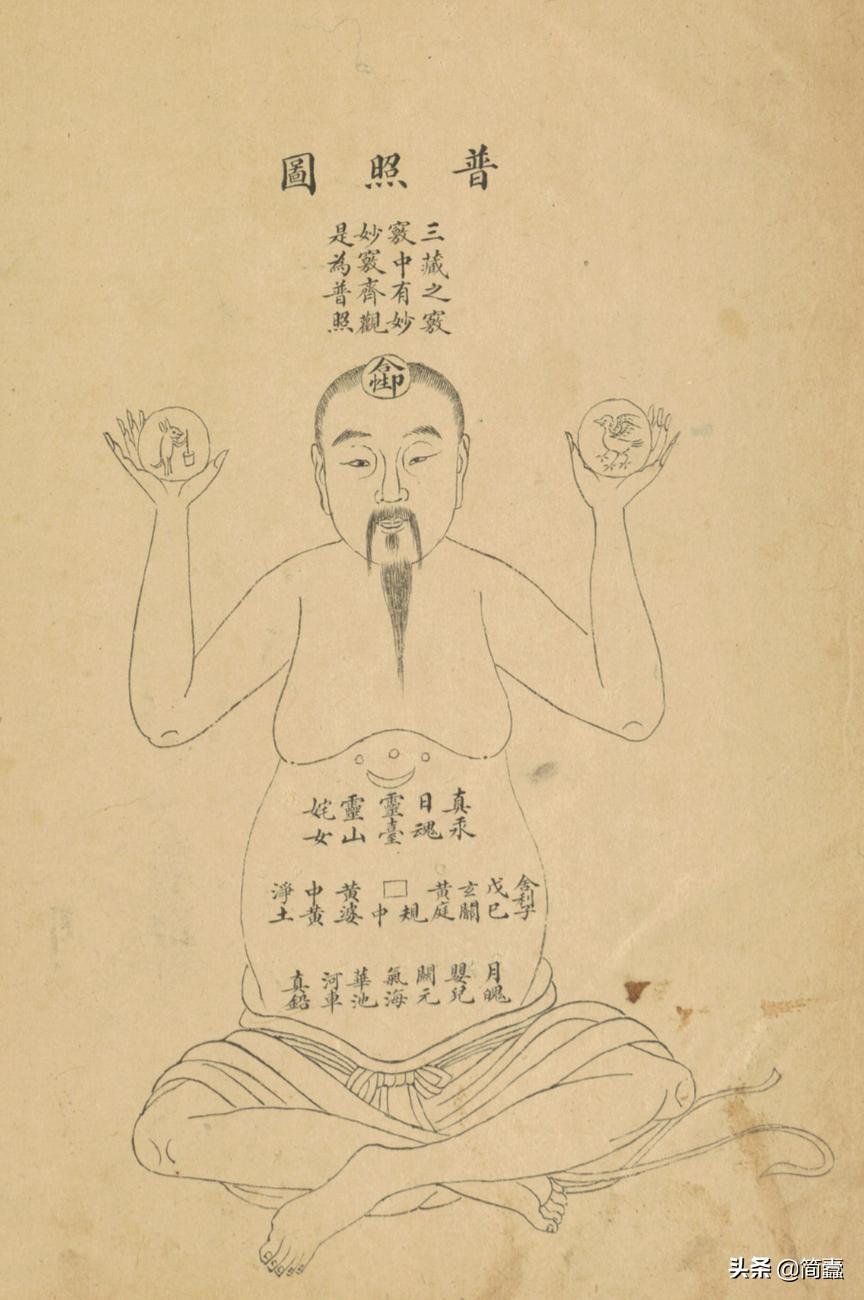 普照圖
三藏之竅
竅中有妙
妙竅齊觀
是為普照
真汞
日魂
靈臺
靈山
姹女
舍利子
戊巳
玄關
黃庭
規中
黃婆
中黃
淨土
月魄
嬰兒
關元
氣海
華池
河車
真鉛
头条 @简蠹